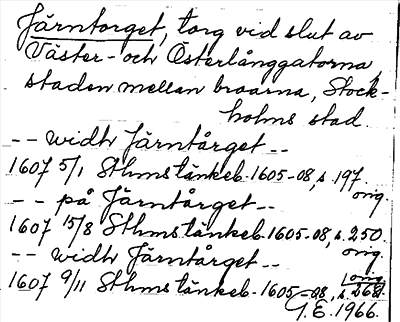 Järntorget, torg vid slut av
Väster- och Österlånggatorna
staden mellan broarna, Stock-
holms stad.
-- widh Järntårget --
1607 5/1 Sthms tänkeb. 1605-08, s. 197.
orig.
-- på Järntårget --
1607 15/8 Sthms tänkeb. 1605-08, s. 250.
orig.
-- widh Järntårget --
orig.
1607 9/11 Sthms tänkeb. 1605-08, s. 268.
G.E. 1966.